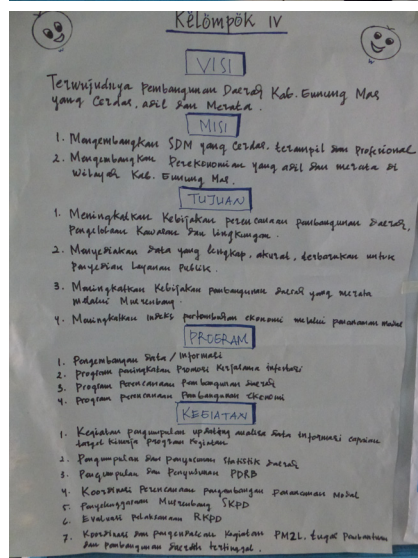 Kelompok IV
VISI
Terwujudnya pembangunan Daerah Kab. Gunung Mas
yang Cerdas, adil dan Merata.
MISI
1. Mengembangkan SDM yang Cerdas, terampil dan Profesional
2. Mengembangkan Perekonomian yang adil dan merata di
Wilayah Kab. Gunung Mas.
TUJUAN
1. Meningkatkan Kebijakan perencanaan pembangunan Daerah,
Pengelolaan Kawasan dan lingkungan.
2. Menyediakan data yang lengkap, akurat, terbarukan untuk
Penyedian Layanan Publik.
3. Meningkatkan Kebijakan pembangunan Daerah yang merata
melalui Musrenbang.
4. Meningkatkan indeks pertumbuhan ekonomi melalui penanaman modal
PROGRAM
1. Pengembangan data / Informasi
2. Program peningkatan Promosi Kerjasama infestasi
3. Program Perencanaan Pembangunan daerah
4. Program perencanaan Pembangunan ekonomi
KEGIATAN
1. Kegiatan pengumpulan updating analisa data Informasi capaian
target Kinerja program Kegiatan
2. Pengumpulan dan penyusunan Statistik daerah
3. Pengumpulan dan Penyusunan PDRB
4. Koordinasi Perencanaan pengembangan penanaman Modal
5. Penyelenggaraan Musrenbang SKPD
6. Evaluasi pelaksanaan RKPD
7. Koordinasi dan pengendalian Kegiatan PM2L, tugas Pembantuan
dan pembangunan daerah tertinggal.